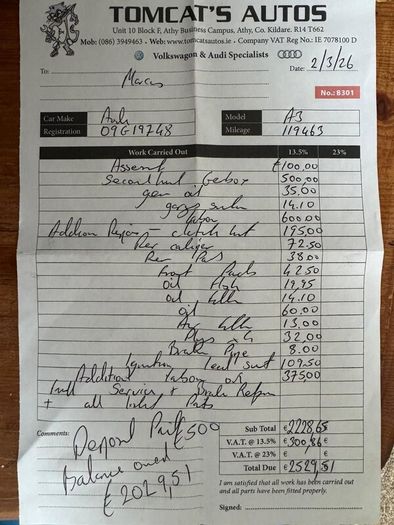 TOMCAT'S AUTOS
Unit 10 Block F, Athy Business Campus, Athy, Co. Kildare. R14 T662
Mob: (086) 3949463 • Web: www.tomcatsautos.ie • Company VAT Reg No.: IE 7078100 D
Volkswagen & Audi Specialists
Date: 2/3/26
To: Marcus
No.: 8301
Car Make Audi Model A3
Registration 09G19748 Mileage 119463
Work Carried Out 13.5% 23%
Assessment €100.00
Secondhand Gearbox 500.00
gear oil 35.00
14.10
labour 600.00
Addition Repairs - clutch kit 195.00
Rear caliper 72.50
Rear Pads 38.00
Front Pads 42.50
Oil Flush 19.95
Oil filter 14.10
oil 60.00
Air filter 13.00
Plugs x4 32.00
Brake Pipe 8.00
Ignition lead set 109.50
Additional labour on 375.00
Full Service + Brake Repairs
+ all listed Parts
Comments:
Deposit Paid €500
Balance owed
€2029,51
Sub Total €2228,65
V.A.T. @ 13.5% €300,86
V.A.T. @ 23% €
Total Due €2529,51
I am satisfied that all work has been carried out
and all parts have been fitted properly.
Signed: